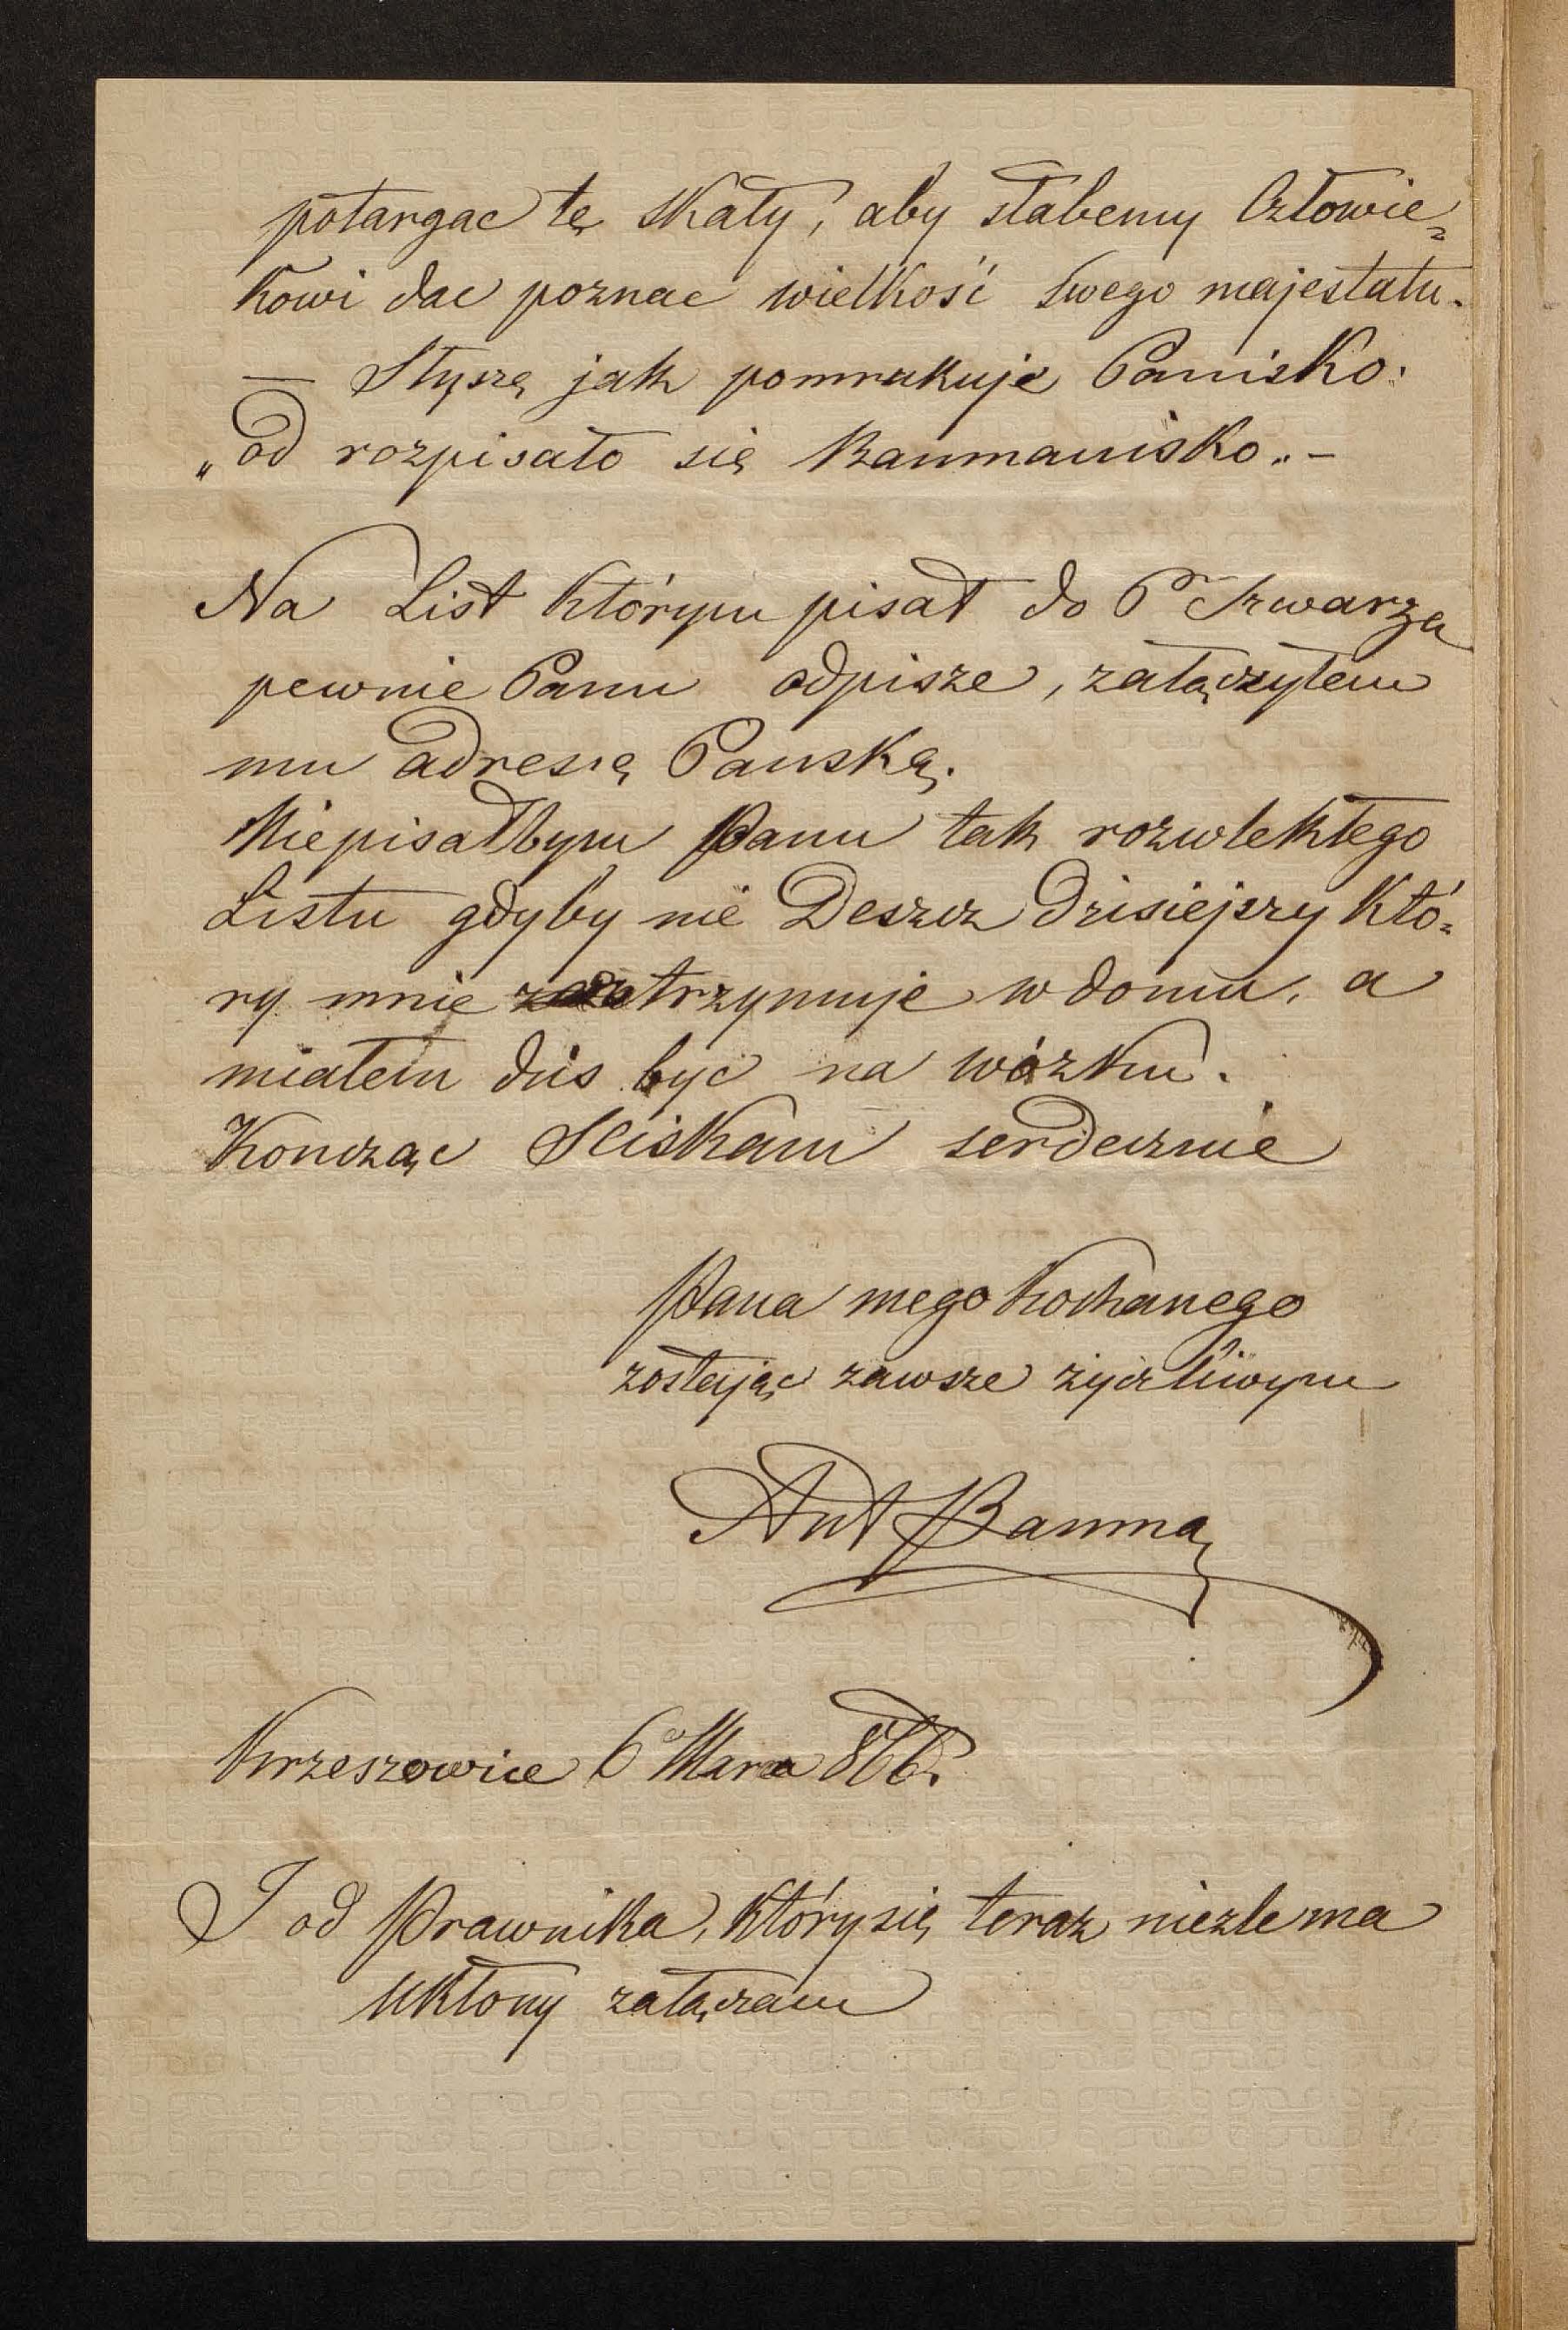 potargac tę skały, aby słabemy Człowie=
kowi dac poznac wielkość swego majestatu.
— Słyszę jak pomrukuje Panisko:
„od rozpisało się Baumanisko„ —
Na List którym pisał do P Szwarza
pewnie Panu odpisze, załączyłem
mu adressę Panską.
Niepisałbym Panu tak rozwlekłego
Listu gdyby nie Deszcz dzisiejszy któ=
ry mnie trzymuje w domu, a
miałem diś być na wózku.
Koncząc Sciskam serdecznie
Pana mego kochanego
zostając zawsze życzliwym
Ant Bauma
Krzeszowice 6 Marca 866.
I od Prawnika, który się teraz nieźle ma
Ukłony załączam